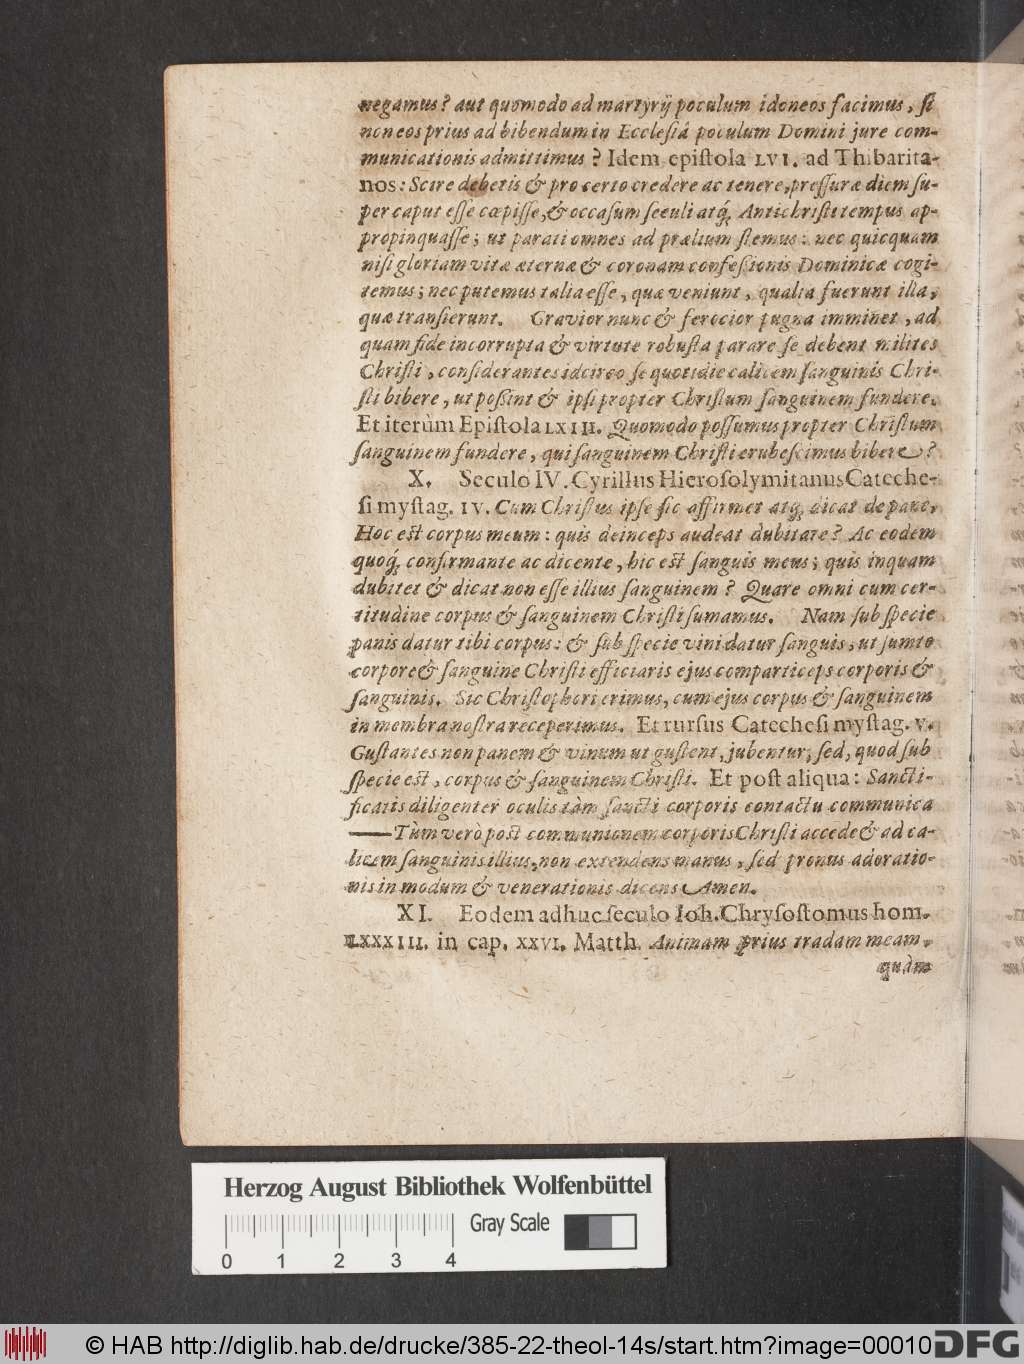 negamus? aut quomodo ad martyrij poculum idoneos facimus, ſi
non eos prius ad bibendum in Eccleſiâ poculum Domini jure com-
municationis admittimus? Idem epiſtola LVI. ad Thibarita-
nos: Scire debetis & pro certo credere ac tenere, preſſuræ diem ſu-
per caput eſſe cœpiſſe, & occaſum ſeculi atq́; Antichriſti tempus ap-
propinquaſſe; ut parati omnes ad prælium ſtemus: nec quicquam
niſi gloriam vitæ æternæ & coronam confeſſionis Dominicæ cogi-
temus; nec putemus talia eſſe, quæ veniunt, qualia fuerunt illa,
quæ tranſierunt. Gravior nunc & ferocior pugna imminet, ad
quam fide incorrupta & virtute robuſta parare ſe debent milites
Chriſti, conſiderantes idcirco ſe quotidie calicem ſanguinis Chri-
ſti bibere, ut poßint & ipſi propter Chriſtum ſanguinem fundere.
Et iterùm Epiſtola LXIII. Quomodo poſſumus propter Chriſtum
ſanguinem fundere, qui ſanguinem Chriſti erubeſcimus bibere?
X. Seculo IV. Cyrillus Hieroſolymitanus Cateche-
ſi myſtag. IV. Cum Chriſtus ipſe ſic affirmet atq́; dicat de pane,
Hoc eſt corpus meum: quis deinceps audeat dubitare? Ac eodem
quoq́; confirmante ac dicente, hic eſt ſanguis meus; quis inquam
dubitet & dicat non eſſe illius ſanguinem? Quare omni cum cer-
titudine corpus & ſanguinem Chriſti ſumamus. Nam ſub ſpecie
panis datur tibi corpus: & ſub ſpecie vini datur ſanguis, ut ſumto
corpore & ſanguine Chriſti efficiaris ejus comparticeps corporis &
ſanguinis. Sic Chriſtophori erimus, cum ejus corpus & ſanguinem
in membra noſtra receperimus. Et rurſus Catecheſi myſtag. V.
Guſtantes non panem & vinum ut guſtent, jubentur; ſed, quod ſub
ſpecie eſt, corpus & ſanguinem Chriſti. Et poſt aliqua: Sancti-
ficatis diligenter oculis tàm ſancti corporis contactu communica
—— Tùm verò poſt communionem corporis Chriſti accede & ad ca-
licem ſanguinis illius, non extendens manus, ſed pronus adoratio-
nis in modum & venerationis dicens Amen.
XI. Eodem adhuc ſeculo Ioh. Chryſoſtomus hom.
LXXXIII. in cap. XXVI. Matth. Animam prius tradam meam,
quàm
Herzog August Bibliothek Wolfenbüttel
Gray Scale
0 1 2 3 4
© HAB http://diglib.hab.de/drucke/385-22-theol-14s/start.htm?image=00010
DFG